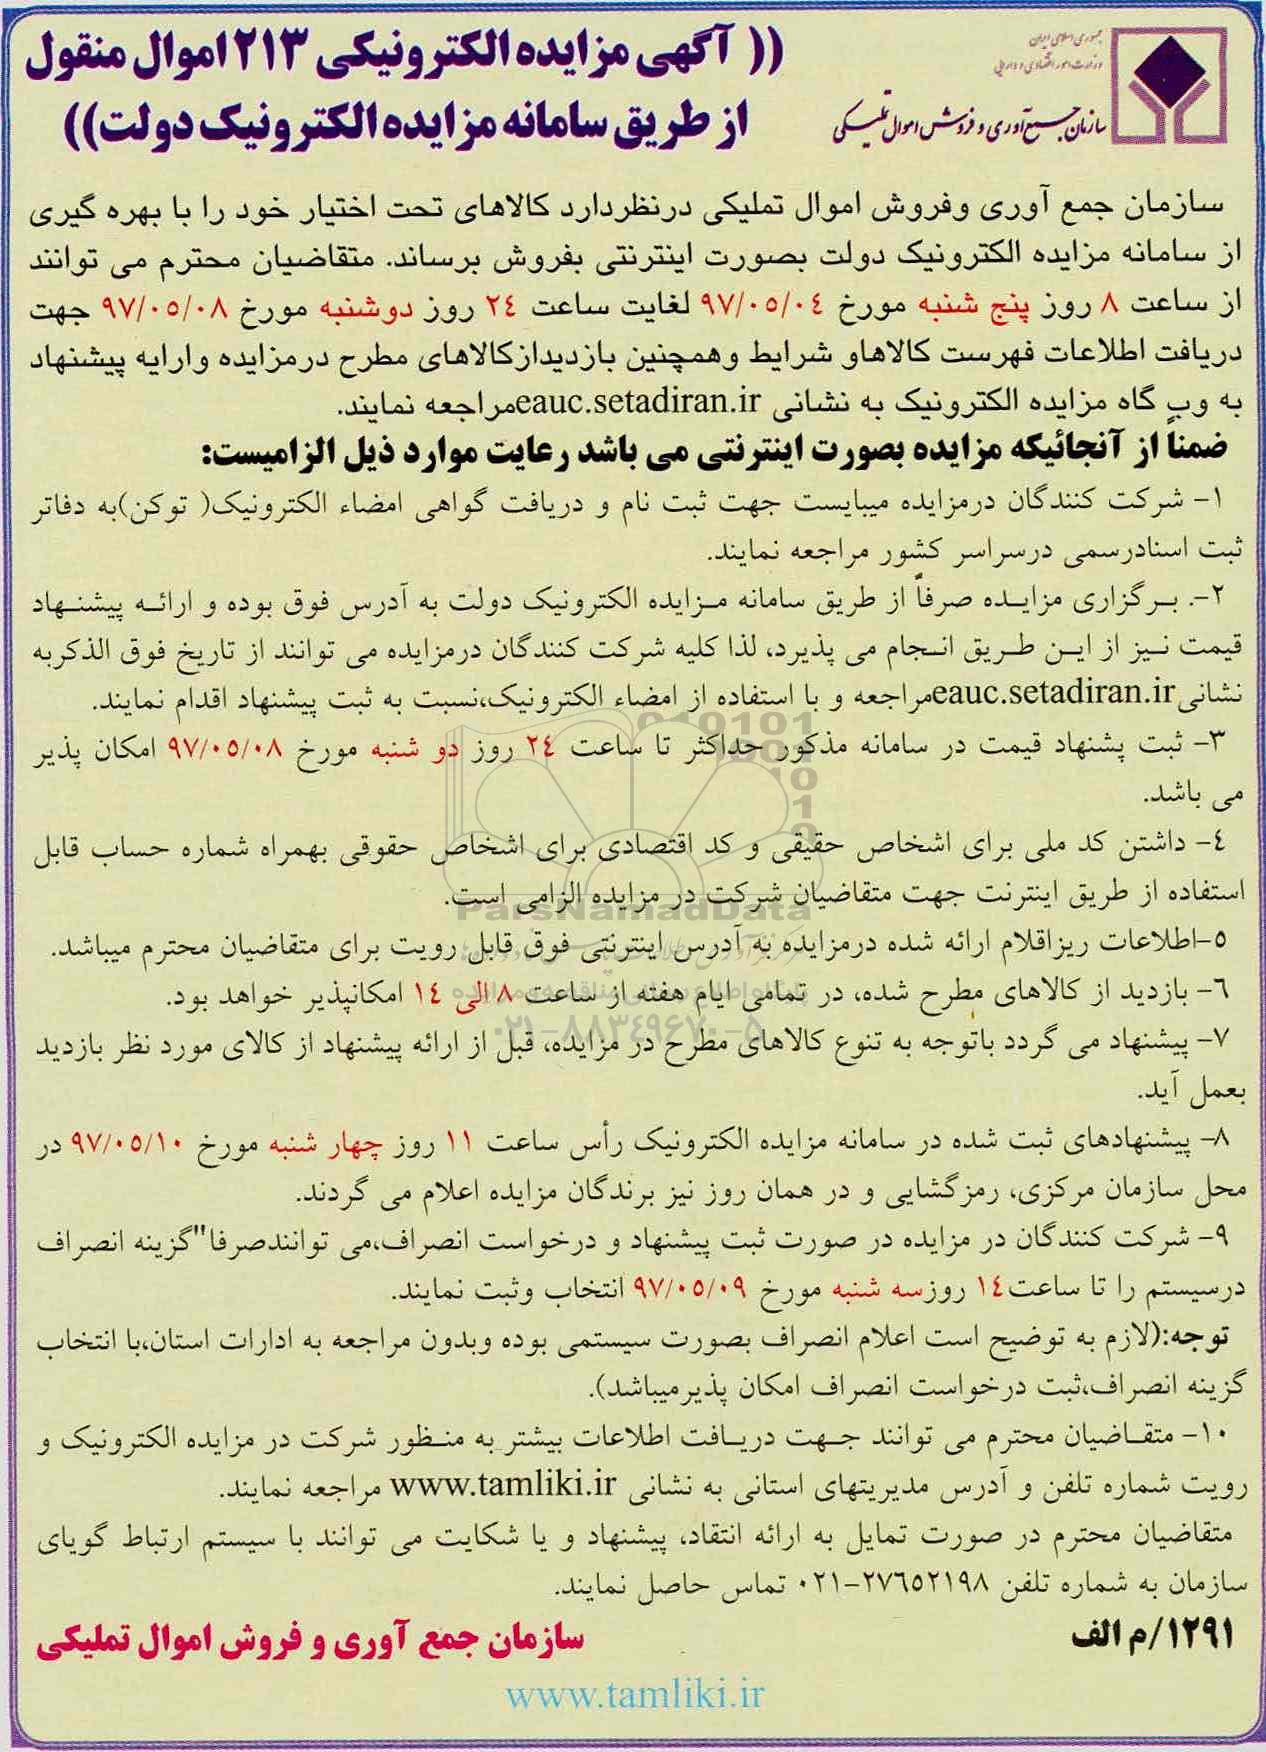 جمهوری اسلامی ایران
وزارت امور اقتصادی و دارایی
سازمان جمع آوری و فروش اموال تملیکی
(( آگهی مزایده الکترونیکی ۲۱۳ اموال منقول
از طریق سامانه مزایده الکترونیک دولت))
سازمان جمع آوری وفروش اموال تملیکی درنظردارد کالاهای تحت اختیار خود را با بهره گیری
از سامانه مزایده الکترونیک دولت بصورت اینترنتی بفروش برساند. متقاضیان محترم می توانند
از ساعت ۸ روز پنج شنبه مورخ ۹۷/۰۵/۰۴ لغایت ساعت ۲۴ روز دوشنبه مورخ ۹۷/۰۵/۰۸ جهت
دریافت اطلاعات فهرست کالاهاو شرایط وهمچنین بازدیدازکالاهای مطرح درمزایده وارایه پیشنهاد
به وب گاه مزایده الکترونیک به نشانی eauc.setadiran.irمراجعه نمایند.
ضمناً از آنجائیکه مزایده بصورت اینترنتی می باشد رعایت موارد ذیل الزامیست:
۱- شرکت کنندگان درمزایده میبایست جهت ثبت نام و دریافت گواهی امضاء الکترونیک( توکن)به دفاتر
ثبت اسنادرسمی درسراسر کشور مراجعه نمایند.
۲-. برگزاری مزایده صرفاً از طریق سامانه مزایده الکترونیک دولت به آدرس فوق بوده و ارائه پیشنهاد
قیمت نیز از این طریق انجام می پذیرد، لذا کلیه شرکت کنندگان درمزایده می توانند از تاریخ فوق الذکربه
نشانیeauc.setadiran.irمراجعه و با استفاده از امضاء الکترونیک،نسبت به ثبت پیشنهاد اقدام نمایند.
۳- ثبت پشنهاد قیمت در سامانه مذکور حداکثر تا ساعت ۲۴ روز دو شنبه مورخ ۹۷/۰۵/۰۸ امکان پذیر
می باشد.
۴- داشتن کد ملی برای اشخاص حقیقی و کد اقتصادی برای اشخاص حقوقی بهمراه شماره حساب قابل
استفاده از طریق اینترنت جهت متقاضیان شرکت در مزایده الزامی است.
ParsNamadData
۵-اطلاعات ریزاقلام ارائه شده درمزایده به آدرس اینترنتی فوق قابل رویت برای متقاضیان محترم میباشد.
۶- بازدید از کالاهای مطرح شده، در تمامی ایام هفته از ساعت ۸ الی ۱۴ امکانپذیر خواهد بود.
۰۲۱-۸۸۳۴۹۶۷۰-۵
۷- پیشنهاد می گردد باتوجه به تنوع کالاهای مطرح در مزایده، قبل از ارائه پیشنهاد از کالای مورد نظر بازدید
بعمل آید.
۸- پیشنهادهای ثبت شده در سامانه مزایده الکترونیک رأس ساعت ۱۱ روز چهار شنبه مورخ ۹۷/۰۵/۱۰ در
محل سازمان مرکزی، رمزگشایی و در همان روز نیز برندگان مزایده اعلام می گردند.
۹- شرکت کنندگان در مزایده در صورت ثبت پیشنهاد و درخواست انصراف،می توانندصرفا"گزینه انصراف
درسیستم را تا ساعت۱۴ روزسه شنبه مورخ ۹۷/۰۵/۰۹ انتخاب وثبت نمایند.
توجه:(لازم به توضیح است اعلام انصراف بصورت سیستمی بوده وبدون مراجعه به ادارات استان،با انتخاب
گزینه انصراف،ثبت درخواست انصراف امکان پذیرمیباشد).
۱۰- متقاضیان محترم می توانند جهت دریافت اطلاعات بیشتر به منظور شرکت در مزایده الکترونیک و
رویت شماره تلفن و آدرس مدیریتهای استانی به نشانی www.tamliki.ir مراجعه نمایند.
متقاضیان محترم در صورت تمایل به ارائه انتقاد، پیشنهاد و یا شکایت می توانند با سیستم ارتباط گویای
سازمان به شماره تلفن ۲۷۶۵۲۱۹۸-۰۲۱ تماس حاصل نمایند.
۱۲۹۱/م الف
سازمان جمع آوری و فروش اموال تملیکی
www.tamliki.ir